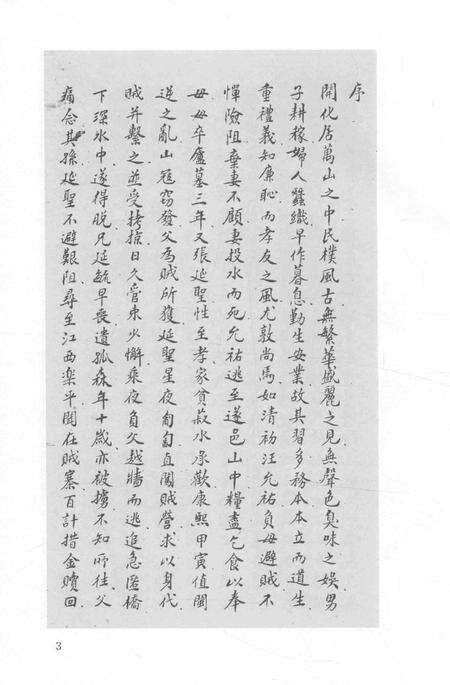 序
開化居萬山之中民樸風古無繁華盛麗之見無聲色臭味之娛男
子耕稼婦人蠶織早作暮息勤生安業故其習多務本本立而道生
重禮義知廉恥而孝友之風尤敦尚焉如清初汪允祐負母避賊不
憚險阻棄妻不顧妻投水而死允祐逃至遂邑山中糧盡乞食以奉
母母卒廬墓三年又張延聖性至孝家貧菽水承歡康熙甲寅值閩
逆之亂山寇竊發父為賊所獲延聖星夜匍匐直闖賊營求以身代
賊并繫之並受拷掠日久管束少懈乘夜負父越牆而逃追急匿橋
下深水中遂得脫兄延毓早喪遺孤森年十歲亦被擄不知所往父
痛念其孫延聖不避艱阻尋至江西樂平聞在賊寨百計措金贖回
3